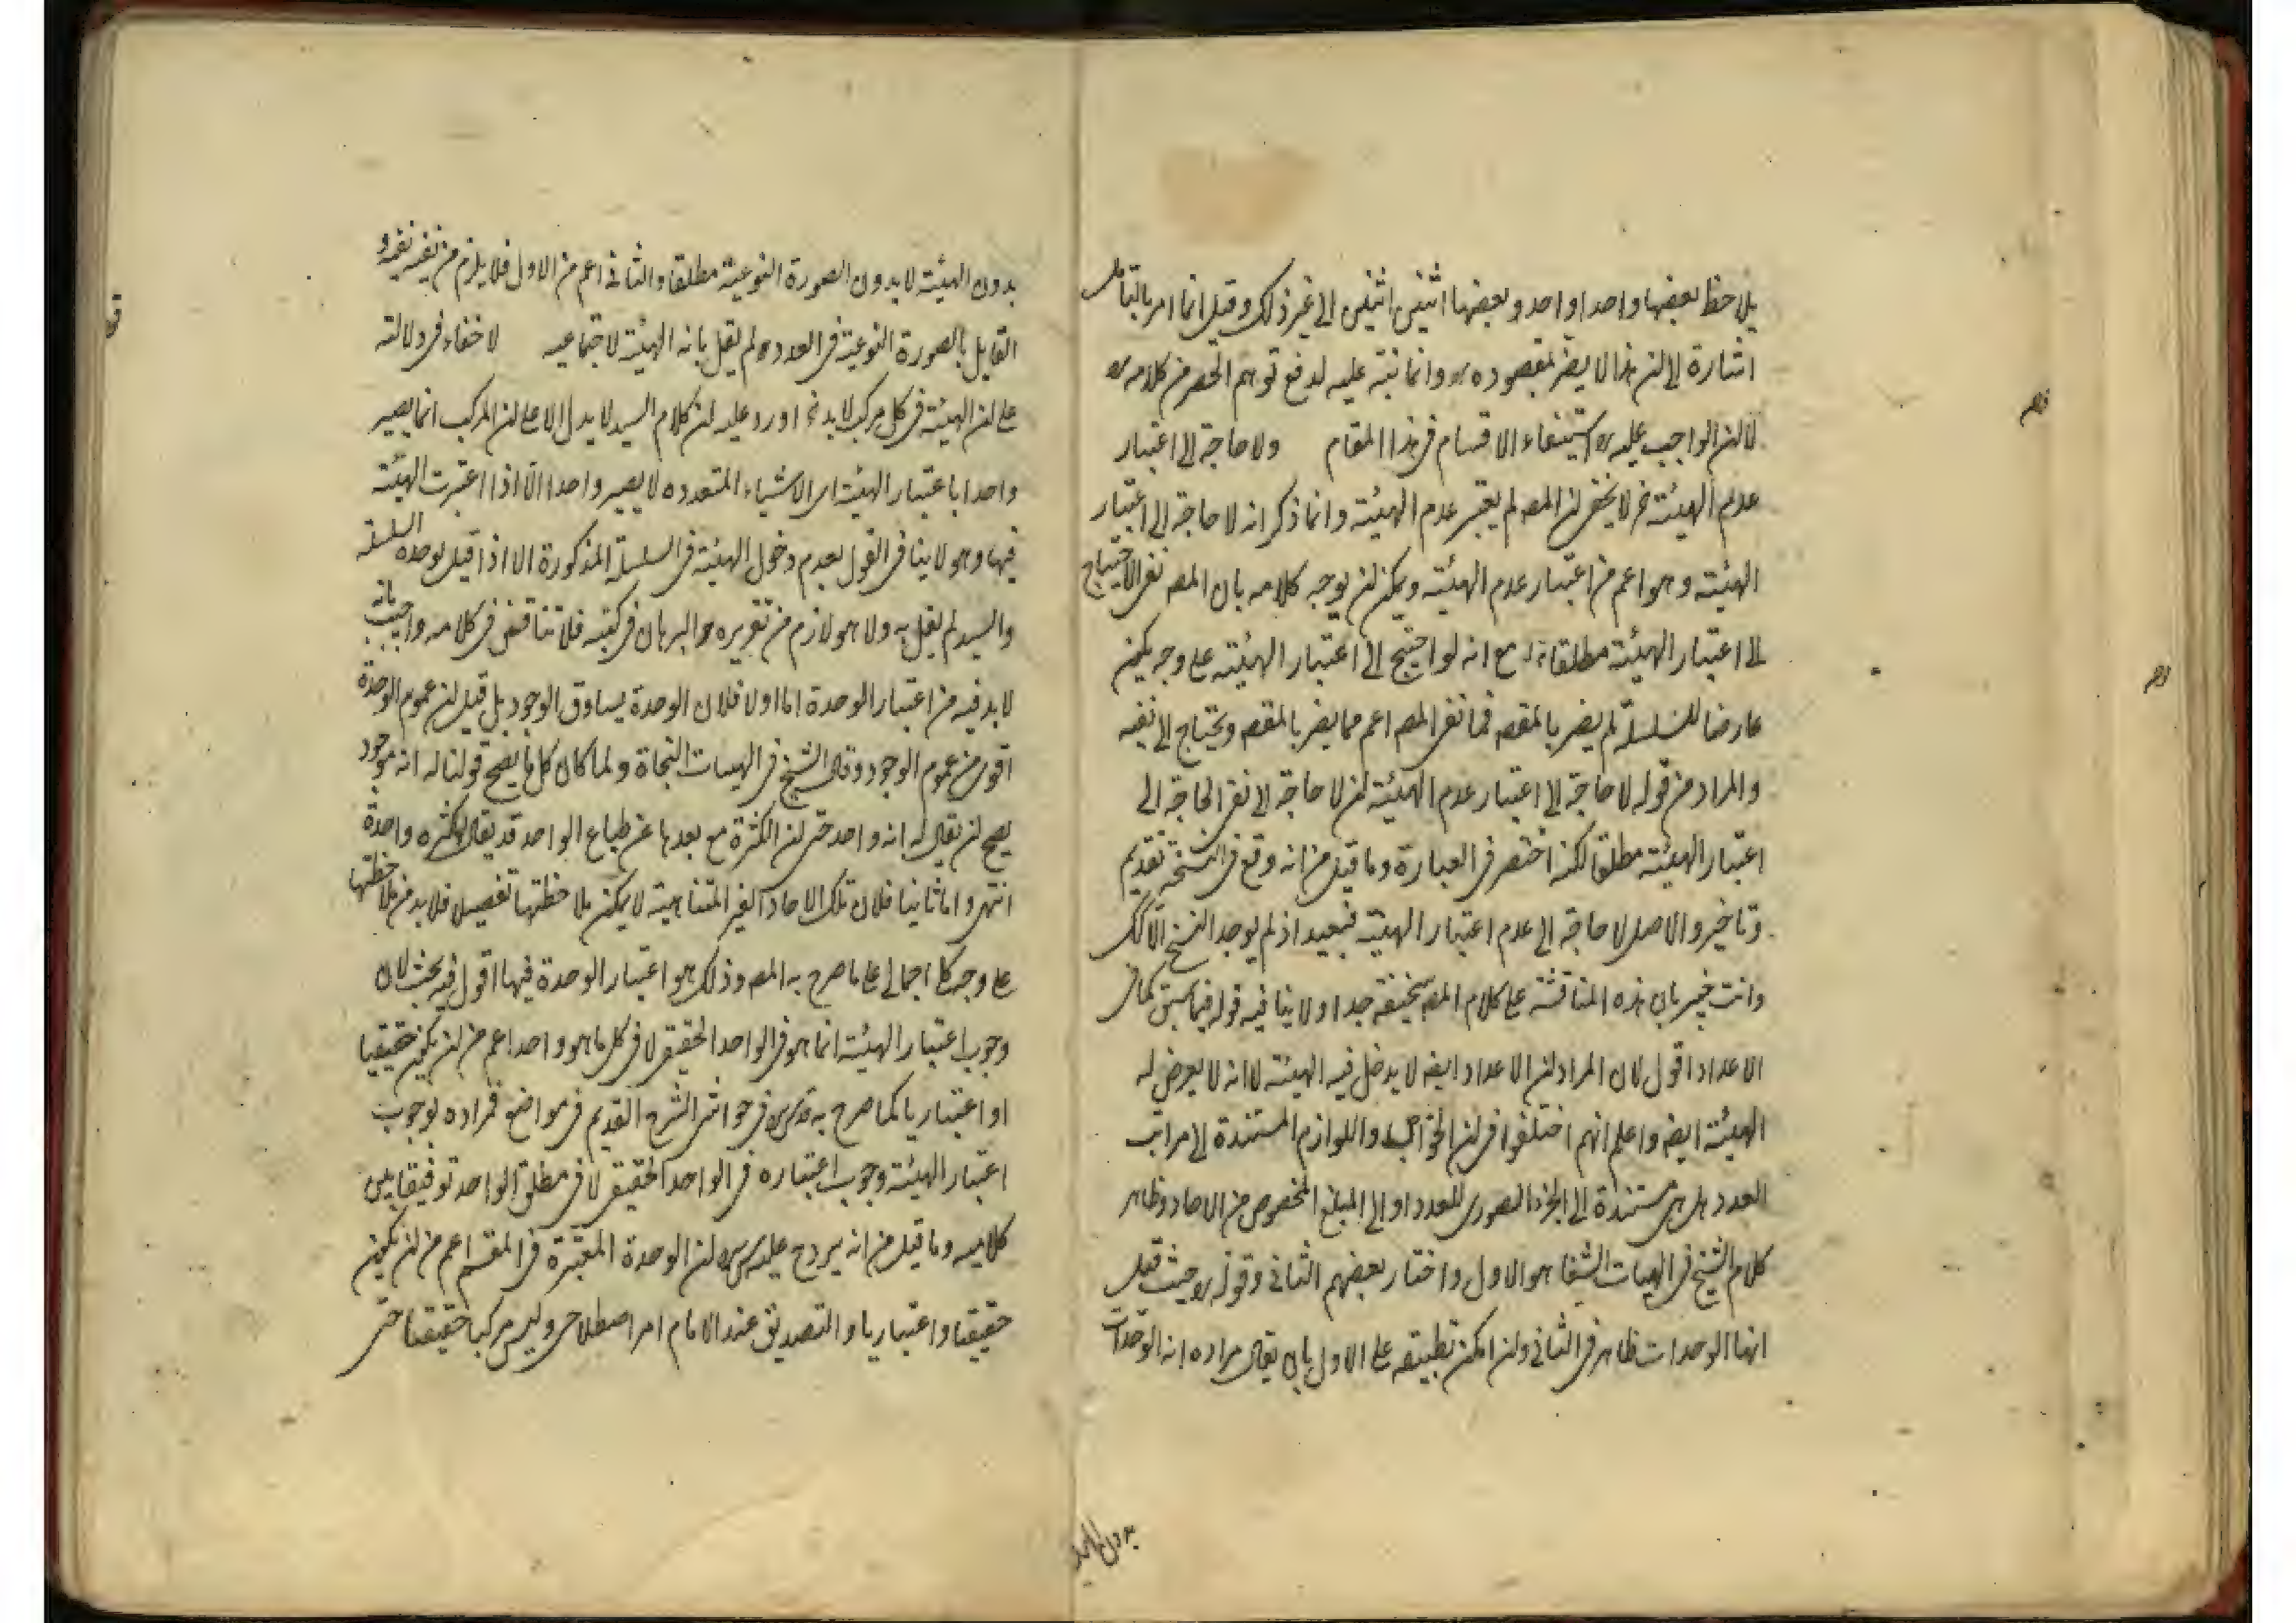 يلاحظ بعضها واحدا واحد وبعضها اثنين اثنين الى غير ذلك وقيل انما امر بالتامل
اشارة الى ان هذا لا يضر بمقصوده وانما نبّه عليه لدفع توهم الحصر من كلامه
لا ان الواجب عليه استيفاء الاقسام في هذا المقام ولا حاجة الى اعتبار
عدم الهيئة لا يخفى ان المصر لم يعتبر عدم الهيئة وانما ذكر انه لا حاجة الى اعتبار
الهيئة وهو اعم من اعتبار عدم الهيئة ويمكن ان يوجه كلامه بان المصر نفى الاحتياج
الى اعتبار الهيئة مطلقا مع انه لو احتيج الى اعتبار الهيئة على وجه يكون
عارضا للسلسلة لم يضر بالمقصر فما نفى المصر اعم مما يضر بالمقصر ويحتاج الى نفيه
والمراد من قوله لا حاجة الى اعتبار عدم الهيئة ان لا حاجة الى نفى الحاجة الى
اعتبار الهيئة مطلقا لكنه اختصر في العبارة وما قيل من انه وقع في النسخة تقديم
وتاخير والاصل لا حاجة الى عدم اعتبار الهيئة فبعيد اذ لم يوجد النسخ الا كك
وانت خبير بان هذه المناقشة على كلام المصر سخيفة جدا ولا ينافيه قوله فيما سبق كما في
الاعداد اقول لان المراد ان الاعداد ايضر لا يدخل فيه الهيئة لا انه لا يعرض له
الهيئة ايضر واعلم انهم اختلفوا في ان الخواص واللوازم المستندة الى مراتب
العدد هل هي مستندة الى الجزء الصورى للعدد او الى المبلغ المخصوص من الاحاد وظاهر
كلام الشيخ في الهيات الشفا هو الاول واختار بعضهم الثاني وقوله حيث قيل
انها الوحدات ظاهر في الثاني وان امكن تطبيقه على الاول بان يقال مراده انه الوحدات
بدون الهيئة
بدون الهيئة لا بدون الصورة النوعية مطلقا والثاني اعم من الاول فلا يلزم من نفيه نفيه و
القايل بالصورة النوعية في العدد لم يقل بانه الهيئة لاجتماعيه لا خفاء في دلالته
على ان الهيئة في كل مركب لا بد اورد عليه ان كلام السيد لا يدل الا على ان المركب انما يصير
واحدا باعتبار الهيئة اى الاشياء المتعدده لا يصير واحدا الا اذا اعتبرت الهيئة
فيها وهو لا ينافى القول بعدم دخول الهيئة في السلسلة المذكورة الا اذا قيل بوحده السلسله
والسيد لم يقل به ولا هو لازم من تقريره البرهان في كتبه فلا تناقض في كلامه واجيب بانه
لا بد فيه من اعتبار الوحدة اما اولا فلان الوحدة يساوق الوجود بل قيل ان عموم الوحدة
اقوى من عموم الوجود وقال الشيخ في الهيات النجاة ولما كان كل ما يصح قولنا له انه موجود
يصح ان يقال له انه واحد حتى ان الكثرة مع بعدها عن طباع الواحد قد يقال لكثره واحدة
انتهى واما ثانيا فلان تلك الاحاد الغير المتناهية لا يمكن ملاحظتها تفصيلا فلا بد من ملاحظتها
على وجه كلى اجمالى على ما صرح به المصر وذلك هو اعتبار الوحدة فيها اقول فيه بحث لان
وجوب اعتبار الهيئة انما هو في الواحد الحقيقى لا في كل ما هو واحد اعم من ان يكون حقيقيا
او اعتباريا كما صرح به في حواشى الشرح القديم في مواضع فمراده بوجوب
اعتبار الهيئة وجوب اعتباره في الواحد الحقيقى لا في مطلق الواحد توفيقا بين
كلاميه وما قيل من انه يرد ح عليه ان الوحدة المعتبرة في المقسم اعم من ان يكون
حقيقا واعتباريا والتصديق عند الامام امر اصطلاحى وليس مركبا حقيقا حتى